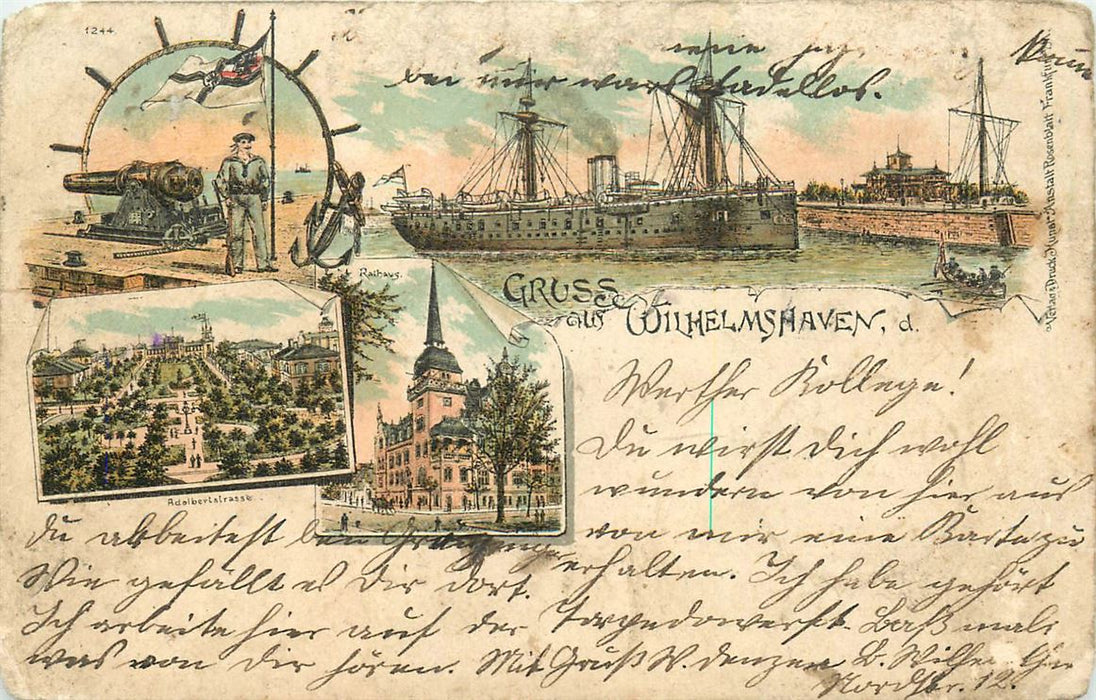 1244
bei mir war tadellos.
Verlag & Druck Kunst-Anstalt Rosenblatt Frankfurt
Rathaus.
GRUSS
aus WILHELMSHAVEN, d.
Adalbertstrasse.
Werther Kollege!
Du wirst Dich wohl
wundern von hier aus
von mir eine Karte zu
erhalten. Ich habe gehört
du arbeitest bei
Wie gefällt es Dir dort.
Ich arbeite hier auf der Torpedowerft. Laß mal
was von Dir hören. Mit Gruß W.
Nordstr. 12.